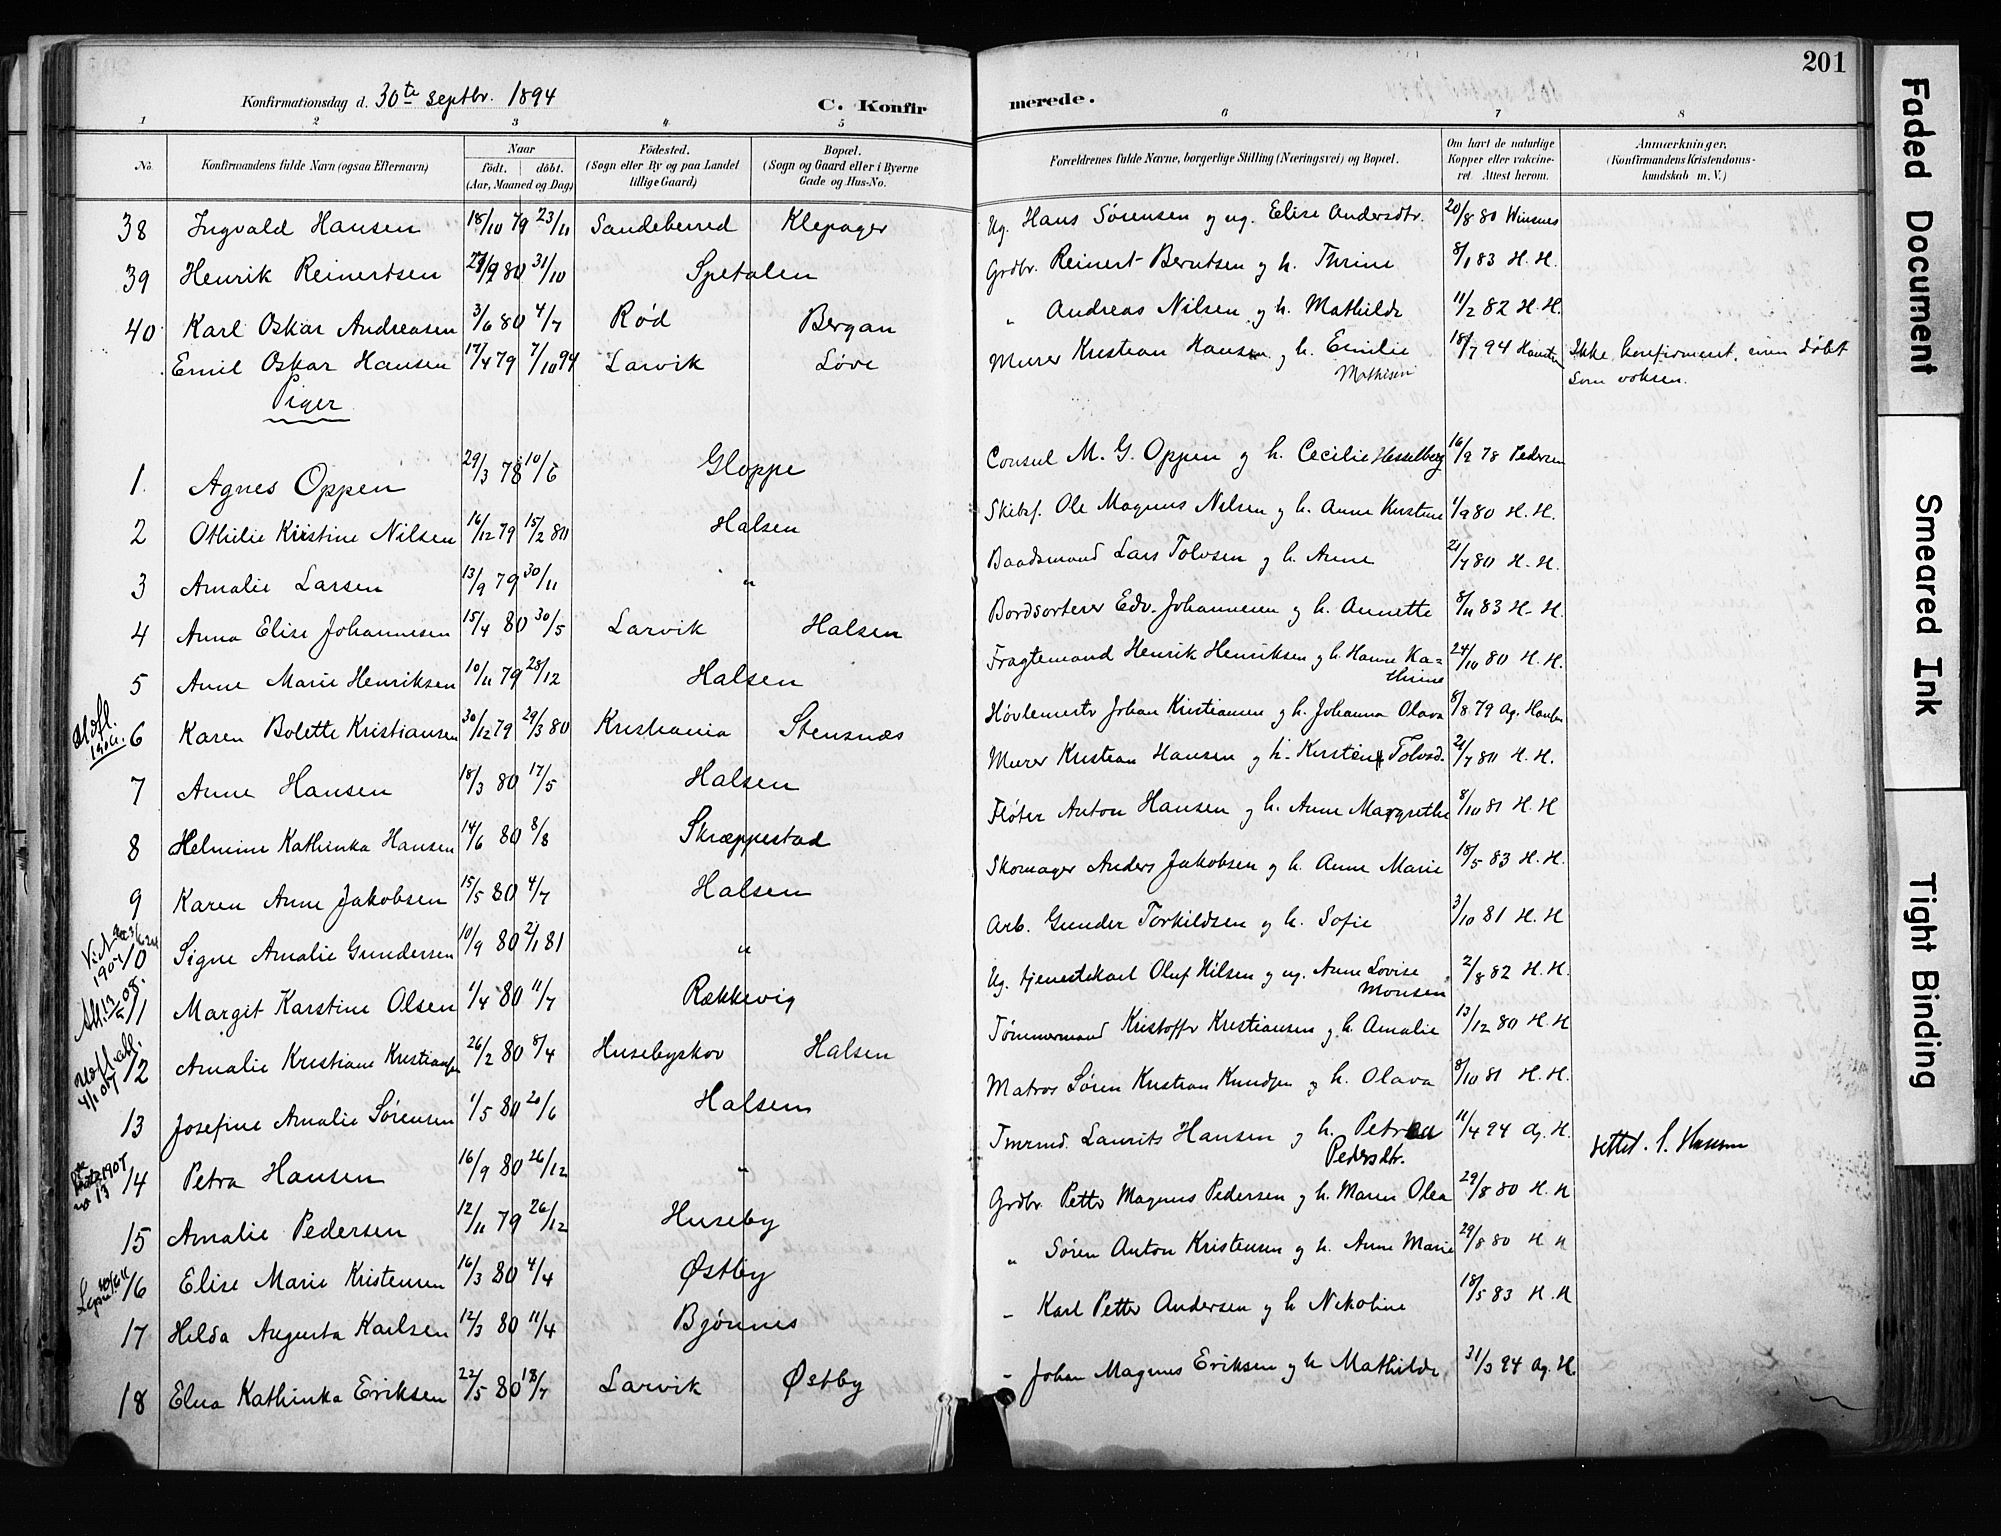 201
Konfirmationsdag d. 30te septbr. 1894 C. Konfirmerede.
1 2 3 4 5 6 7 8
No. Konfirmandens fulde Navn (ogsaa Efternavn) Naar født. døbt. (Aar, Maaned og Dag) Födested. (Sogn eller By og paa Landet tillige Gaard) Bopæl. (Sogn og Gaard eller i Byerne Gade og Hus-No. Forældrenes fulde Navne, borgerlige Stilling (Næringsvei) og Bopæl. Om havt de naturlige Kopper eller vakcineret. Attest herom. Anmærkninger. (Konfirmandens Kristendomskundskab m. V.)
38 Ingvald Hansen 18/10 79 23/11 Sandeherred Klepager Ug. Hans Sørensen og ug. Elise Andersdtr. 20/8 80 Winsnes
39 Henrik Reinertsen 80 31/10 Spetalen Grdbr. Reinert Berntsen og h. Thrine 8/1 83 H. H.
40 Karl Oskar Andreasen 3/6 80 4/7 Rød Bergan " Andreas Nilsen og h. Mathilde 11/2 82 H. H.
Emil Oskar Hansen 17/4 79 7/10 94 Larvik Løve Murer Kristian Hansen og h. Emilie Mathisen 18/7 94 Ikke konfirmeret, men døbt som voksen.
Piger
1. Agnes Oppen 29/3 78 10/6 Gloppe Consul M. G. Oppen og h. Cecilie Hesselberg 16/9 78 Pedersen
2 Othilie Kristine Nilsen 16/12 79 15/2 80 Halsen Skibsf. Ole Magnus Nilsen og h. Anne Kirstine 1/9 80 H. H.
3 Amalie Larsen 13/9 79 30/11 " Baadsmand Lars Tolvsen og h. Anne 21/7 80 H. H.
4 Anna Elise Johannesen 15/4 80 30/5 Larvik Halsen Bordsorterer Edv. Johannesen og h. Annette 8/11 83 H. H.
5 Anne Marie Henriksen 10/11 79 28/12 Halsen Fragtemand Henrik Henriksen og h. Hanne Kathrine 24/10 80 H. H.
1906. 6 Karen Bolette Kristiansen 30/12 79 29/3 80 Kristiania Stensnæs Høvlemestr Johan Kristiansen og h. Johanna Olava 8/8 79 Ag.
7 Anne Hansen 18/3 80 17/5 Halsen Murer Kristian Hansen og h. Kirstine Tolvsd. 21/7 80 H. H.
8 Helmine Kathinka Hansen 14/6 80 8/8 Skræppestad Fløter Anton Hansen og h. Anne Margrethe 8/10 81 H. H
9 Karen Anne Jakobsen 15/5 80 4/7 Halsen Skomager Anders Jakobsen og h. Anne Marie 18/5 83 H. H.
10 Signe Amalie Gundersen 10/9 80 2/1 81 " Arb. Gunder Torkildsen og h. Sofie 3/10 81 H. H
11 Margit Karstine Olsen 1/4 80 11/7 Rækkevig Ug. tjenestekarl Oluf Nilsen og ug. Anne Lovise Monsen 2/8 82 H. H.
12 Amalie Kristiane Kristiansen 26/2 80 8/4 Husebyskov Halsen Tømmermand Kristoffer Kristiansen og h. Amalie 13/12 80 H. H
13 Josefine Amalie Sørensen 1/5 80 20/6 Halsen Matros Søren Kristian Knudsen og h. Olava 8/10 81 H. H.
14 Petra Hansen 16/9 80 26/12 " Tmrmd. Laurits Hansen og h. Petrea Pedersdtr. 11/4 94 Ag. H. rettet. S. Hansen
15 Amalie Pedersen 12/11 79 26/12 Huseby Grdbr. Petter Magnus Pedersen og h. Maren Olea 29/8 80 H. H
16 Elise Marie Kristensen 16/3 80 4/4 Østby " Søren Anton Kristensen og h. Anne Marie 29/8 80 H. H
17 Hilda Augusta Karlsen 12/3 80 11/4 Bjønnes " Karl Petter Andersen og h. Nikoline 18/5 83 H. H
18 Elna Kathinka Eriksen 22/5 80 18/7 Larvik Østby " Johan Magnus Eriksen og h. Mathilde 31/3 94 Ag. H.
Faded Document
Smeared Ink
Tight Binding